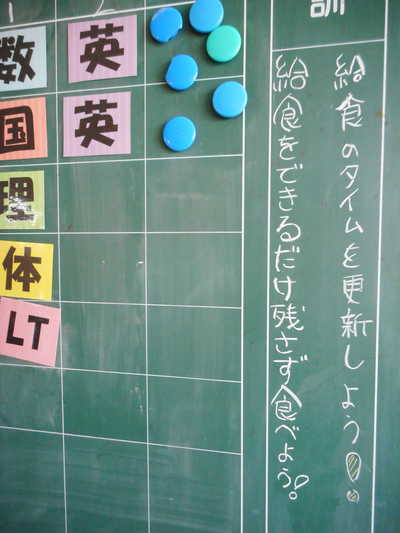 訓
給食のタイムを更新しよう!!
給食をできるだけ残さず食べよう!
英
英
数
国
理
体
LT